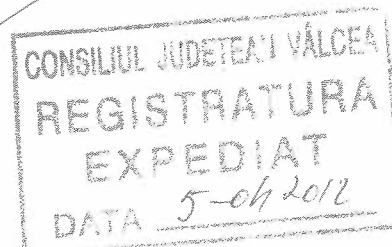 CONSILIUL JUDEŢEAN VÂLCEA
REGISTRATURA
EXPEDIAT
DATA 5-04 2012